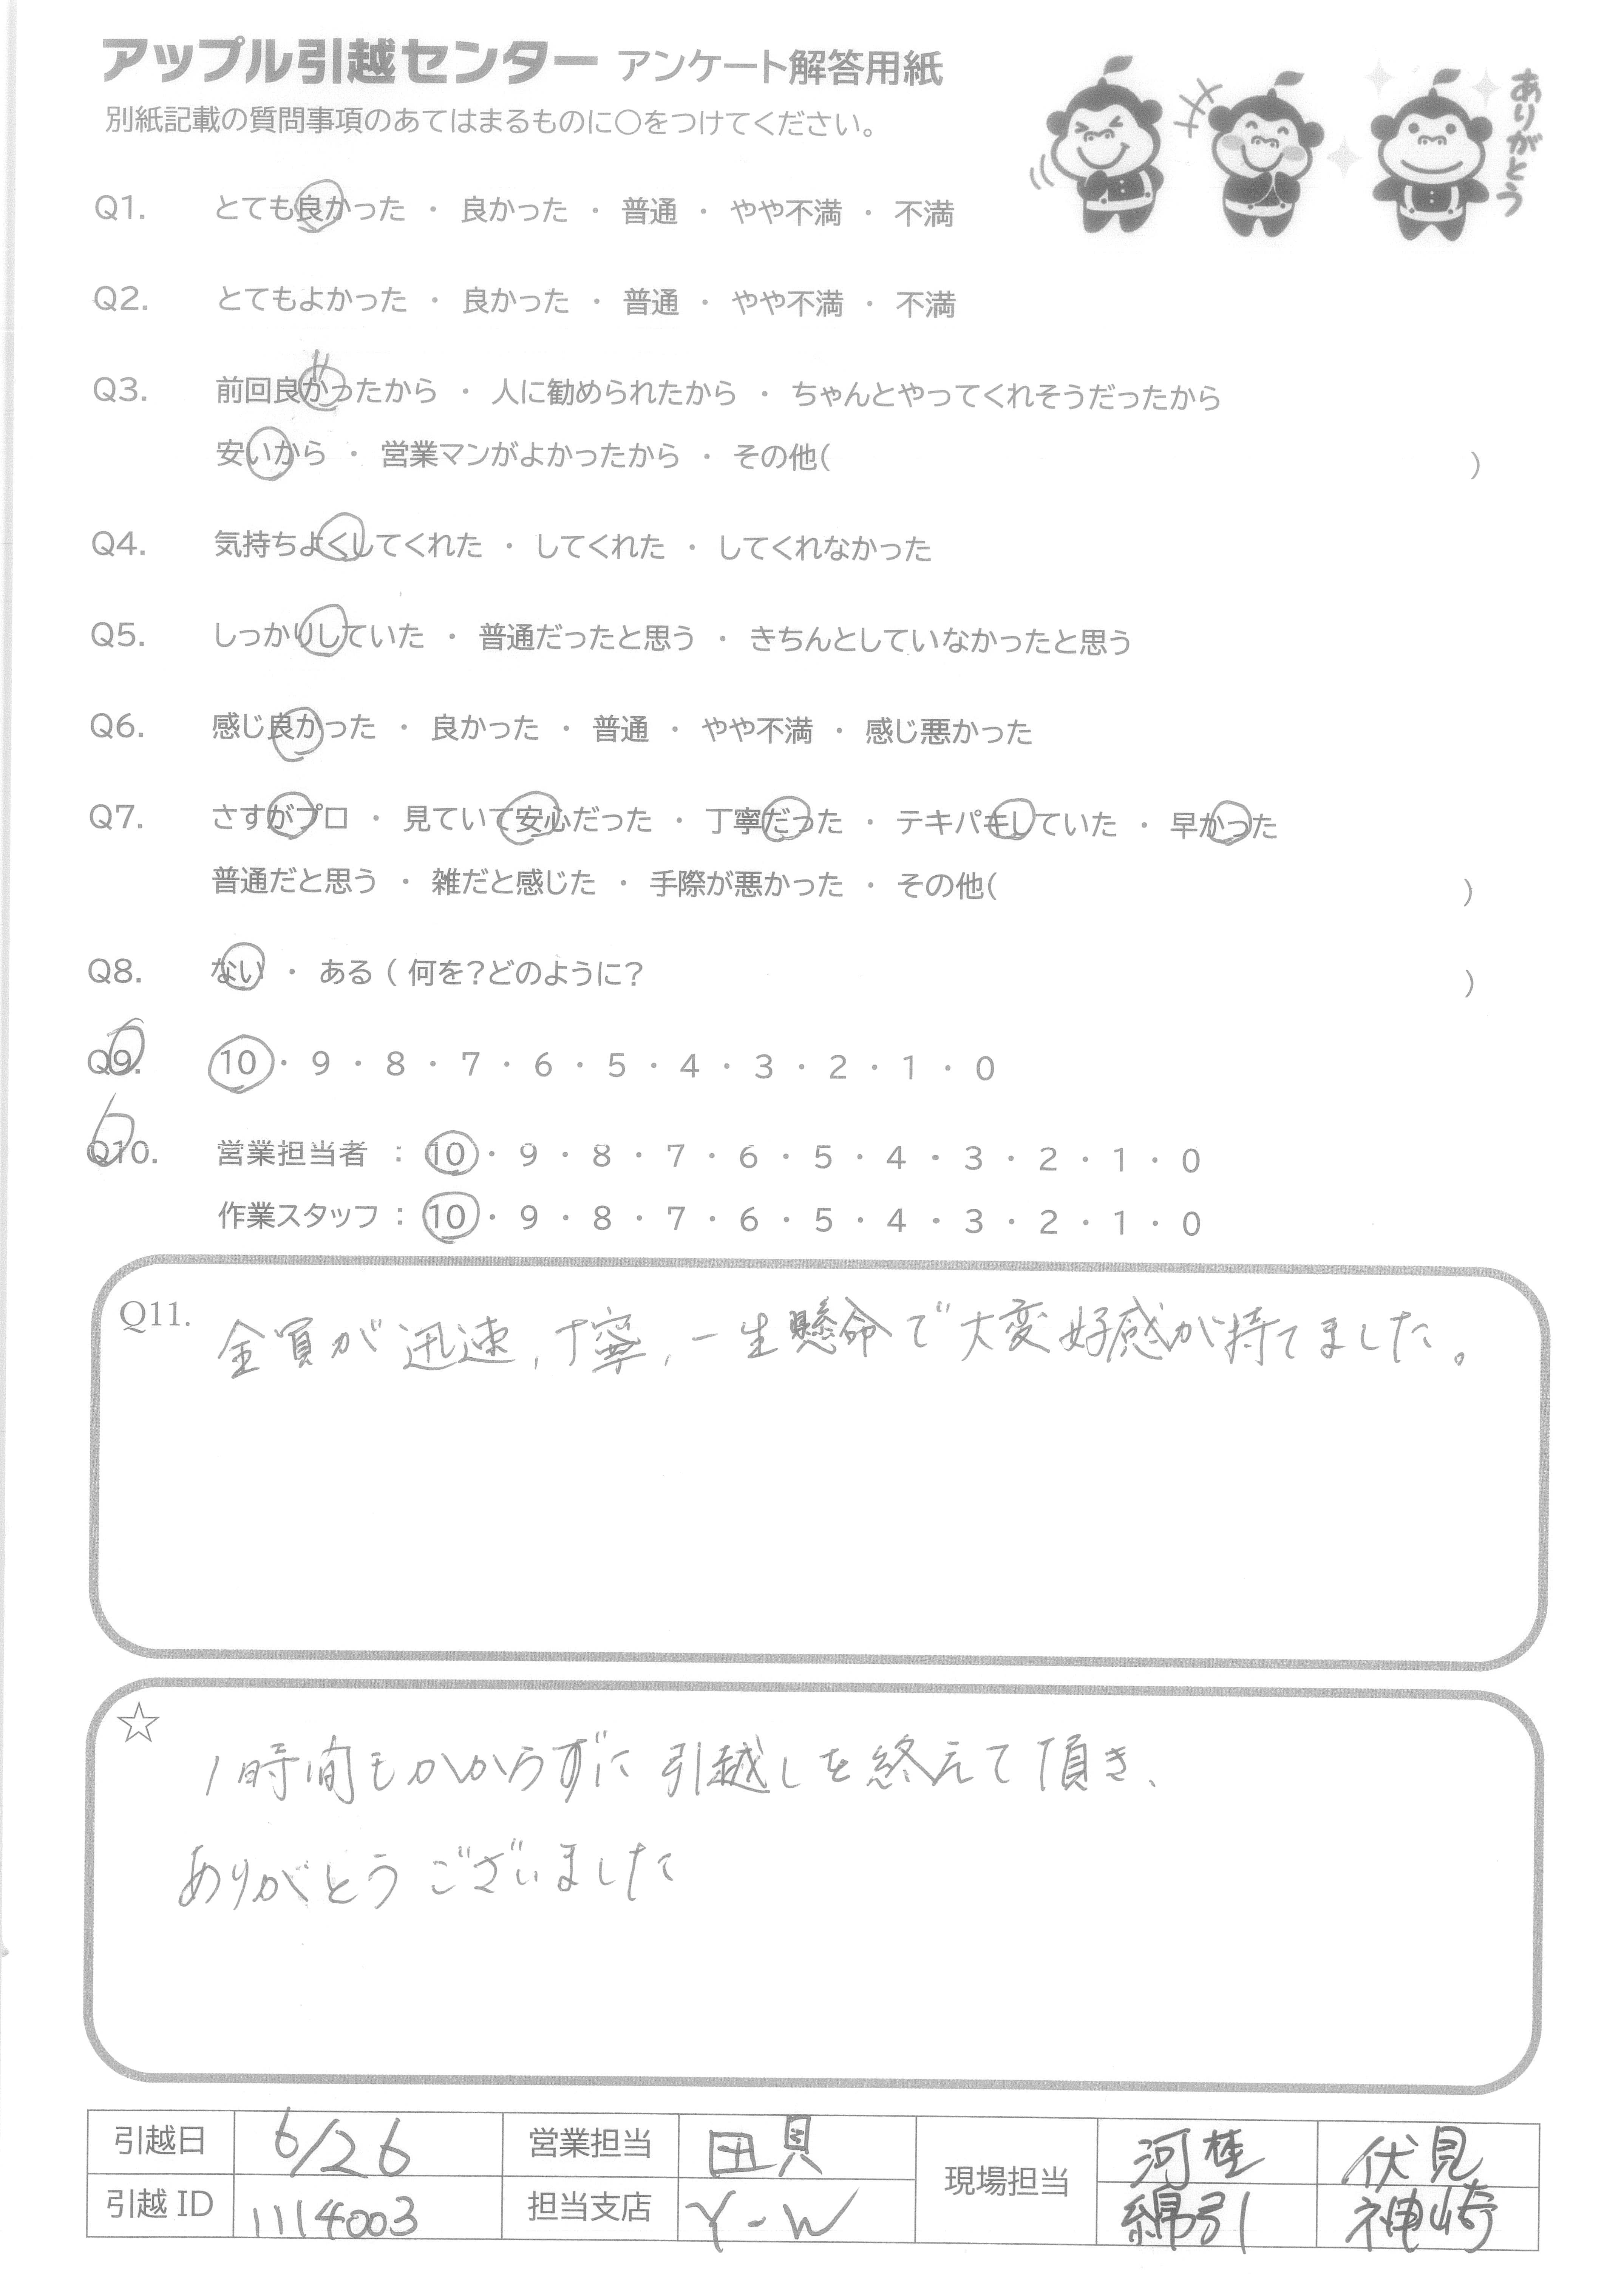 アップル引越センター アンケート解答用紙
別紙記載の質問事項のあてはまるものに○をつけてください。
ありがとう
Q1. とても良かった ・ 良かった ・ 普通 ・ やや不満 ・ 不満
Q2. とてもよかった ・ 良かった ・ 普通 ・ やや不満 ・ 不満
Q3. 前回良かったから ・ 人に勧められたから ・ ちゃんとやってくれそうだったから
安いから ・ 営業マンがよかったから ・ その他( )
Q4. 気持ちよくしてくれた ・ してくれた ・ してくれなかった
Q5. しっかりしていた ・ 普通だったと思う ・ きちんとしていなかったと思う
Q6. 感じ良かった ・ 良かった ・ 普通 ・ やや不満 ・ 感じ悪かった
Q7. さすがプロ ・ 見ていて安心だった ・ 丁寧だった ・ テキパキしていた ・ 早かった
普通だと思う ・ 雑だと感じた ・ 手際が悪かった ・ その他( )
Q8. ない ・ ある ( 何を？どのように？ )
Q9. 10 ・ 9 ・ 8 ・ 7 ・ 6 ・ 5 ・ 4 ・ 3 ・ 2 ・ 1 ・ 0
Q10. 営業担当者 : 10 ・ 9 ・ 8 ・ 7 ・ 6 ・ 5 ・ 4 ・ 3 ・ 2 ・ 1 ・ 0
作業スタッフ : 10 ・ 9 ・ 8 ・ 7 ・ 6 ・ 5 ・ 4 ・ 3 ・ 2 ・ 1 ・ 0
Q11. 全員が迅速,丁寧,一生懸命で大変好感が持てました。
☆
1時間もかからずに引越しを終えて頂き、
ありがとうございました
引越日 6/26 営業担当 田貝 現場担当 河 伏見
引越 ID 1114003 担当支店 Y-W 綿引 神崎